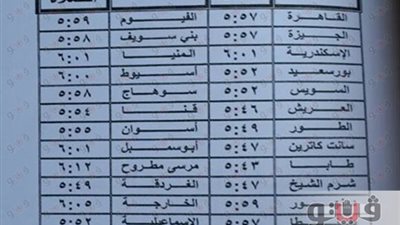 القاهرة ٥:٥٧ الفيوم ٥:٥٩
الجيزة ٥:٥٧ بني سويف ٥:٥٨
الإسكندرية ٦:٠١ المنيا ٦:٠١
بورسعيد ٥:٥٢ أسيوط ٦:٠٠
السويس ٥:٥٢ سوهاج ٥:٥٨
العريش ٥:٤٦ قنا ٥:٥٤
الطور ٥:٤٩ أسوان ٥:٥٥
سانت كاترين ٥:٤٧ أبوسمبل ٦:٠١
طابا ٥:٤٣ مرسى مطروح ٦:١٢
شرم الشيخ ٥:٤٧ الغردقة ٥:٤٩
٥:٥٩ الخارجة ٦:٠٥
الإسماعيلية ٥:٥٢
ڤيتو